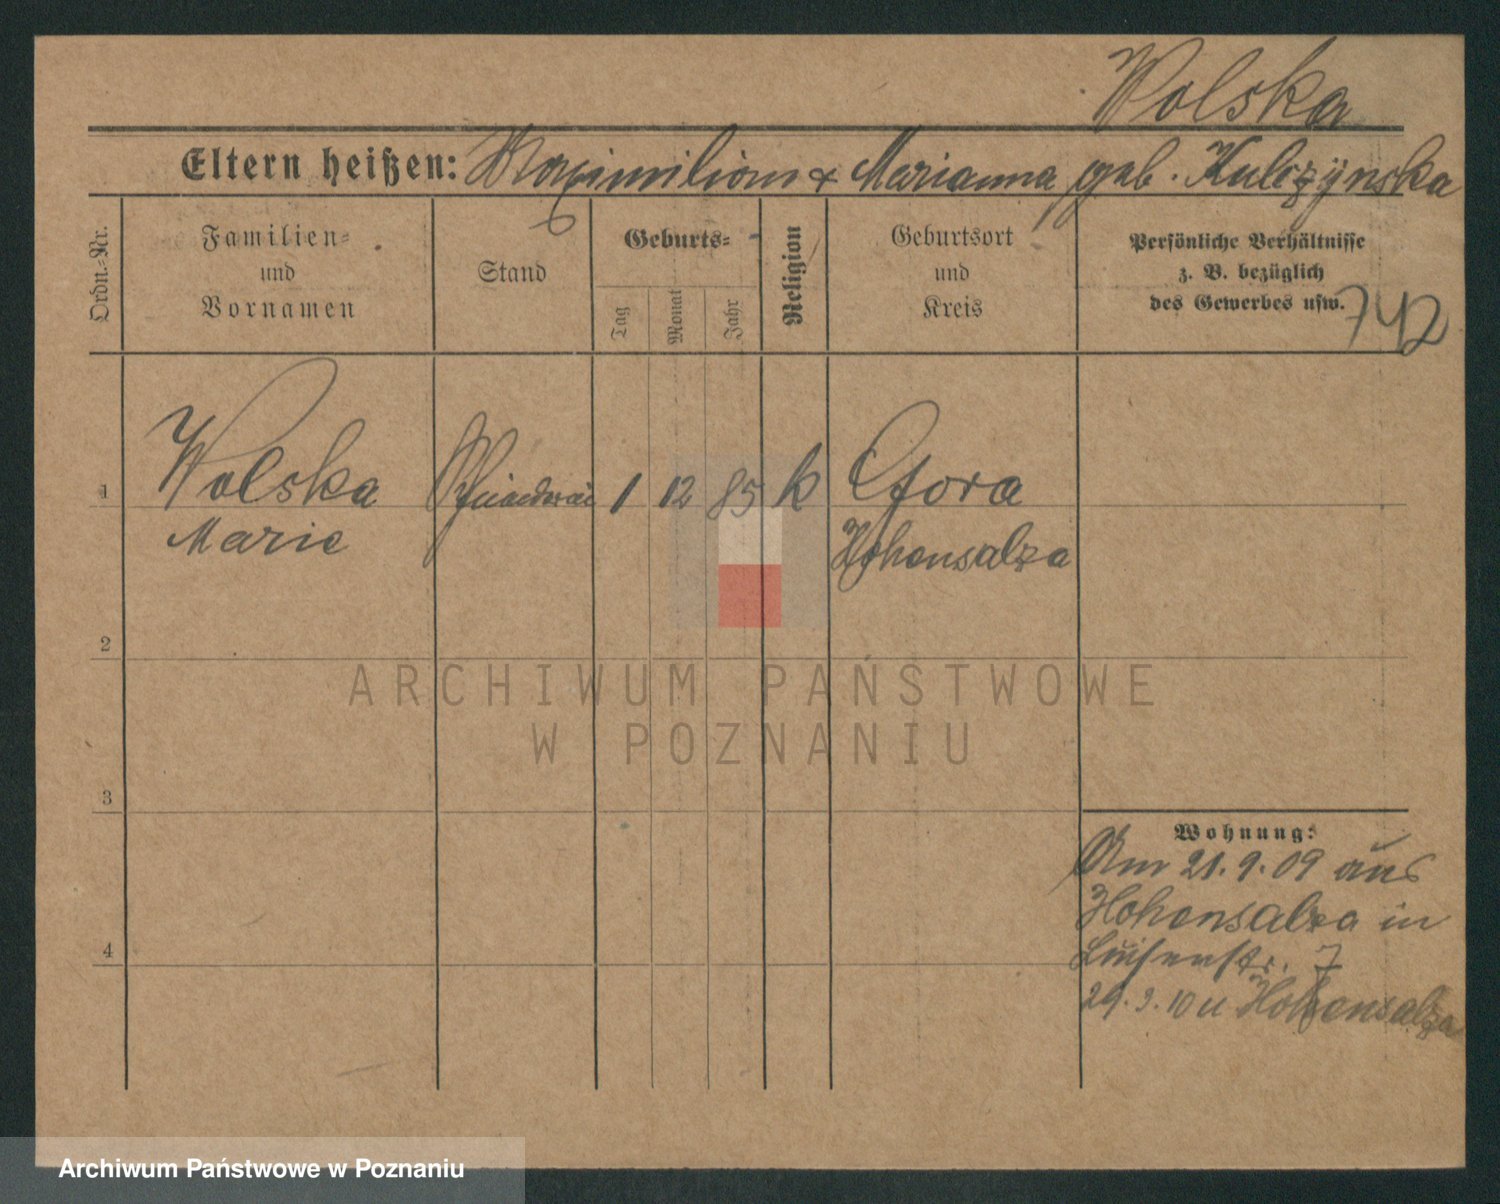 Wolska
Eltern heißen: Maximilian & Marianna geb. Kulczynska
Ordn.=Nr.
Familien=
und
Vornamen
Stand
Geburts=
Tag
Monat
Jahr
Religion
Geburtsort
und
Kreis
Persönliche Verhältnisse
z. B. bezüglich
des Gewerbes usw.
742
1
Wolska
Marie
1 12 85 k
Gora
Hohensalza
2
ARCHIWUM PAŃSTWOWE
W POZNANIU
3
Wohnung:
Am 21.9.09 aus
Hohensalza in
Luisenstr. 7
29.3.10 u Hohensalza
4
Archiwum Państwowe w Poznaniu